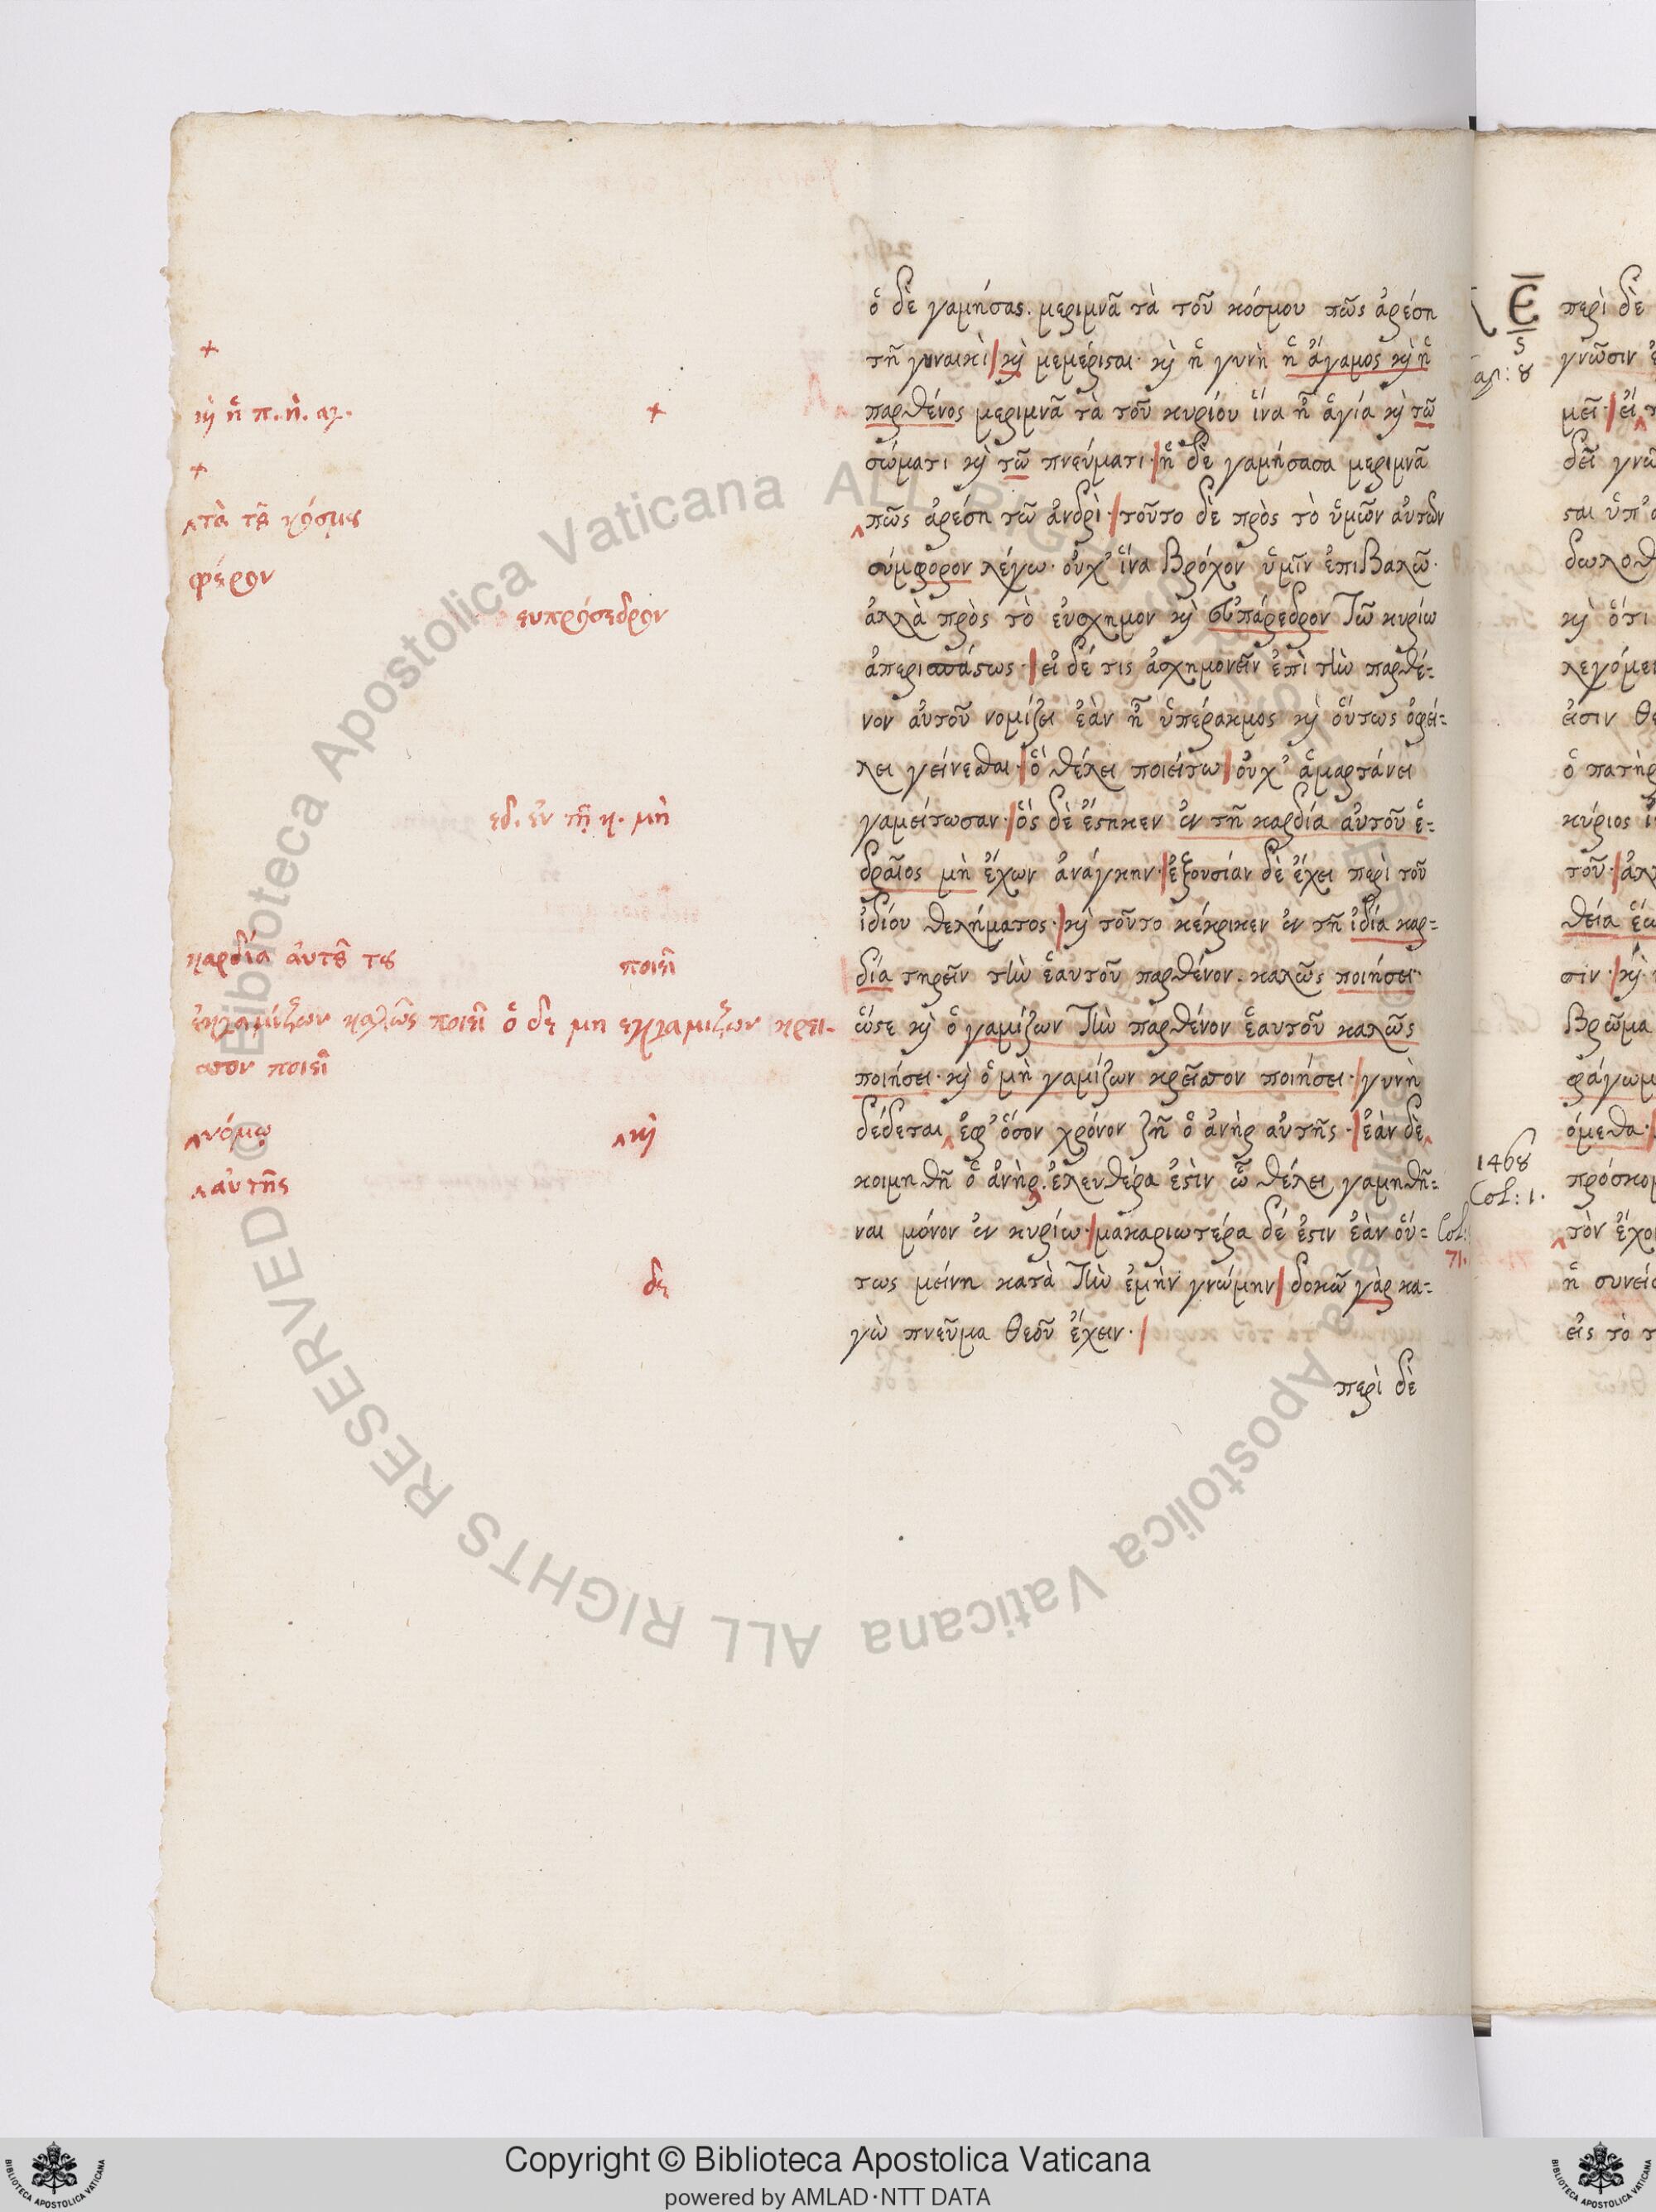 ὁ δὲ γαμήσας. μεριμνᾶ τὰ τοῦ κόσμου πῶς ἀρέση
τῆ γυναικὶ | κ̀ μεμέρισται· κ̀ ἡ γυνὴ ἡ ἄγαμος κ̀ ἡ
παρθένος μεριμνᾶ τὰ τοῦ κυρίου ἵνα ἦ ἁγία κ̀ τῶ
σώματι κ̀ τῶ πνεύματι· | ἡ δὲ γαμήσασα μεριμνᾶ
‸ πῶς ἀρέση τῶ ἀνδρὶ· | τοῦτο δὲ πρὸς τὸ ὑμῶν αὐτῶν
σύμφορον λέγω· οὐχ' ἵνα βρόχον ὑμῖν ἐπιβαλῶ·
ἀλλὰ πρὸς τὸ εὐσχημον κ̀ εὐπάρεδρον τῶ κυρίω
ἀπερισπάστως· | εἰ δέ τις ἀσχημονεῖν ἐπὶ τὴν παρθέ=
νον αὐτοῦ νομίζει ἐὰν ἦ ὑπέρακμος κ̀ οὕτως ὀφεί=
λει γείνεσθαι· | ὃ θέλει ποιείτω | οὐχ' ἁμαρτάνει
γαμείτωσαν· | ὃς δὲ ἕστηκεν ἐν τῆ καρδία αὐτοῦ ἑ=
δραῖος μὴ ἔχων ἀνάγκην· | ἐξουσίαν δὲ ἔχει περὶ τοῦ
ἰδίου θελήματος· | κ̀ τοῦτο κέκρικεν ἐν τῆ ἰδία καρ=
δία τηρεῖν τὴν ἑαυτοῦ παρθένον. καλῶς ποιήσει·
ὥστε κ̀ ὁ γαμίζων τὴν παρθένον ἑαυτοῦ καλῶς
ποιήσει· κ̀ ὁ μὴ γαμίζων κρεῖττον ποιήσει· | γυνὴ
δέδεται ‸ ἐφ' ὅσον χρόνον ζῆ ὁ ἀνὴρ αὐτῆς· | ἐὰν δὲ ‸
κοιμηθῆ ὁ ἀνὴρ. ‸ ἐλευθέρα ἐστὶν ὧ θέλει γαμηθῆ=
ναι μόνον ἐν κυρίω· | μακαριωτέρα δέ ἐστιν ἐὰν οὕ=
τως μείνη κατὰ τὴν ἐμὴν γνώμην | δοκῶ γὰρ κα=
γὼ πνεῦμα θεοῦ ἔχειν· |
περὶ δὲ
+
κ̀ ἡ π. ἡ. αγ. +
+
‸ τὰ τȣ͂ κόσμȣ
φέρον
ευπρόσεδρον
εδ. ἐν τῆ κ. μὴ
καρδία αὐτȣ͂ τȣ ποιεῖ
ἐκγαμίζων καλῶς ποιεῖ ὁ δε μη εκγαμιζων κρει-
ττον ποιεῖ
‸ νόμω ‸ κ̀
‸ αὐτῆς
δε
Col:
71.
Ε περὶ δὲ
γνῶσιν
μεῖ· | εἴ ‸
1468
Col: 1.
κ̀ ὅτι
ὁ πατὴρ
κύριος
τοῦ· |
σιν· | κ̀
βρῶμα
φάγωμ
όμεθα·
πρόσκομ
‸ τὸν ἔχο
ἡ συνεί
εἰς τὸ
Copyright © Biblioteca Apostolica Vaticana
powered by AMLAD·NTT DATA
BIBLIOTECA APOSTOLICA VATICANA
Biblioteca Apostolica Vaticana ALL RIGHTS RESERVED ©